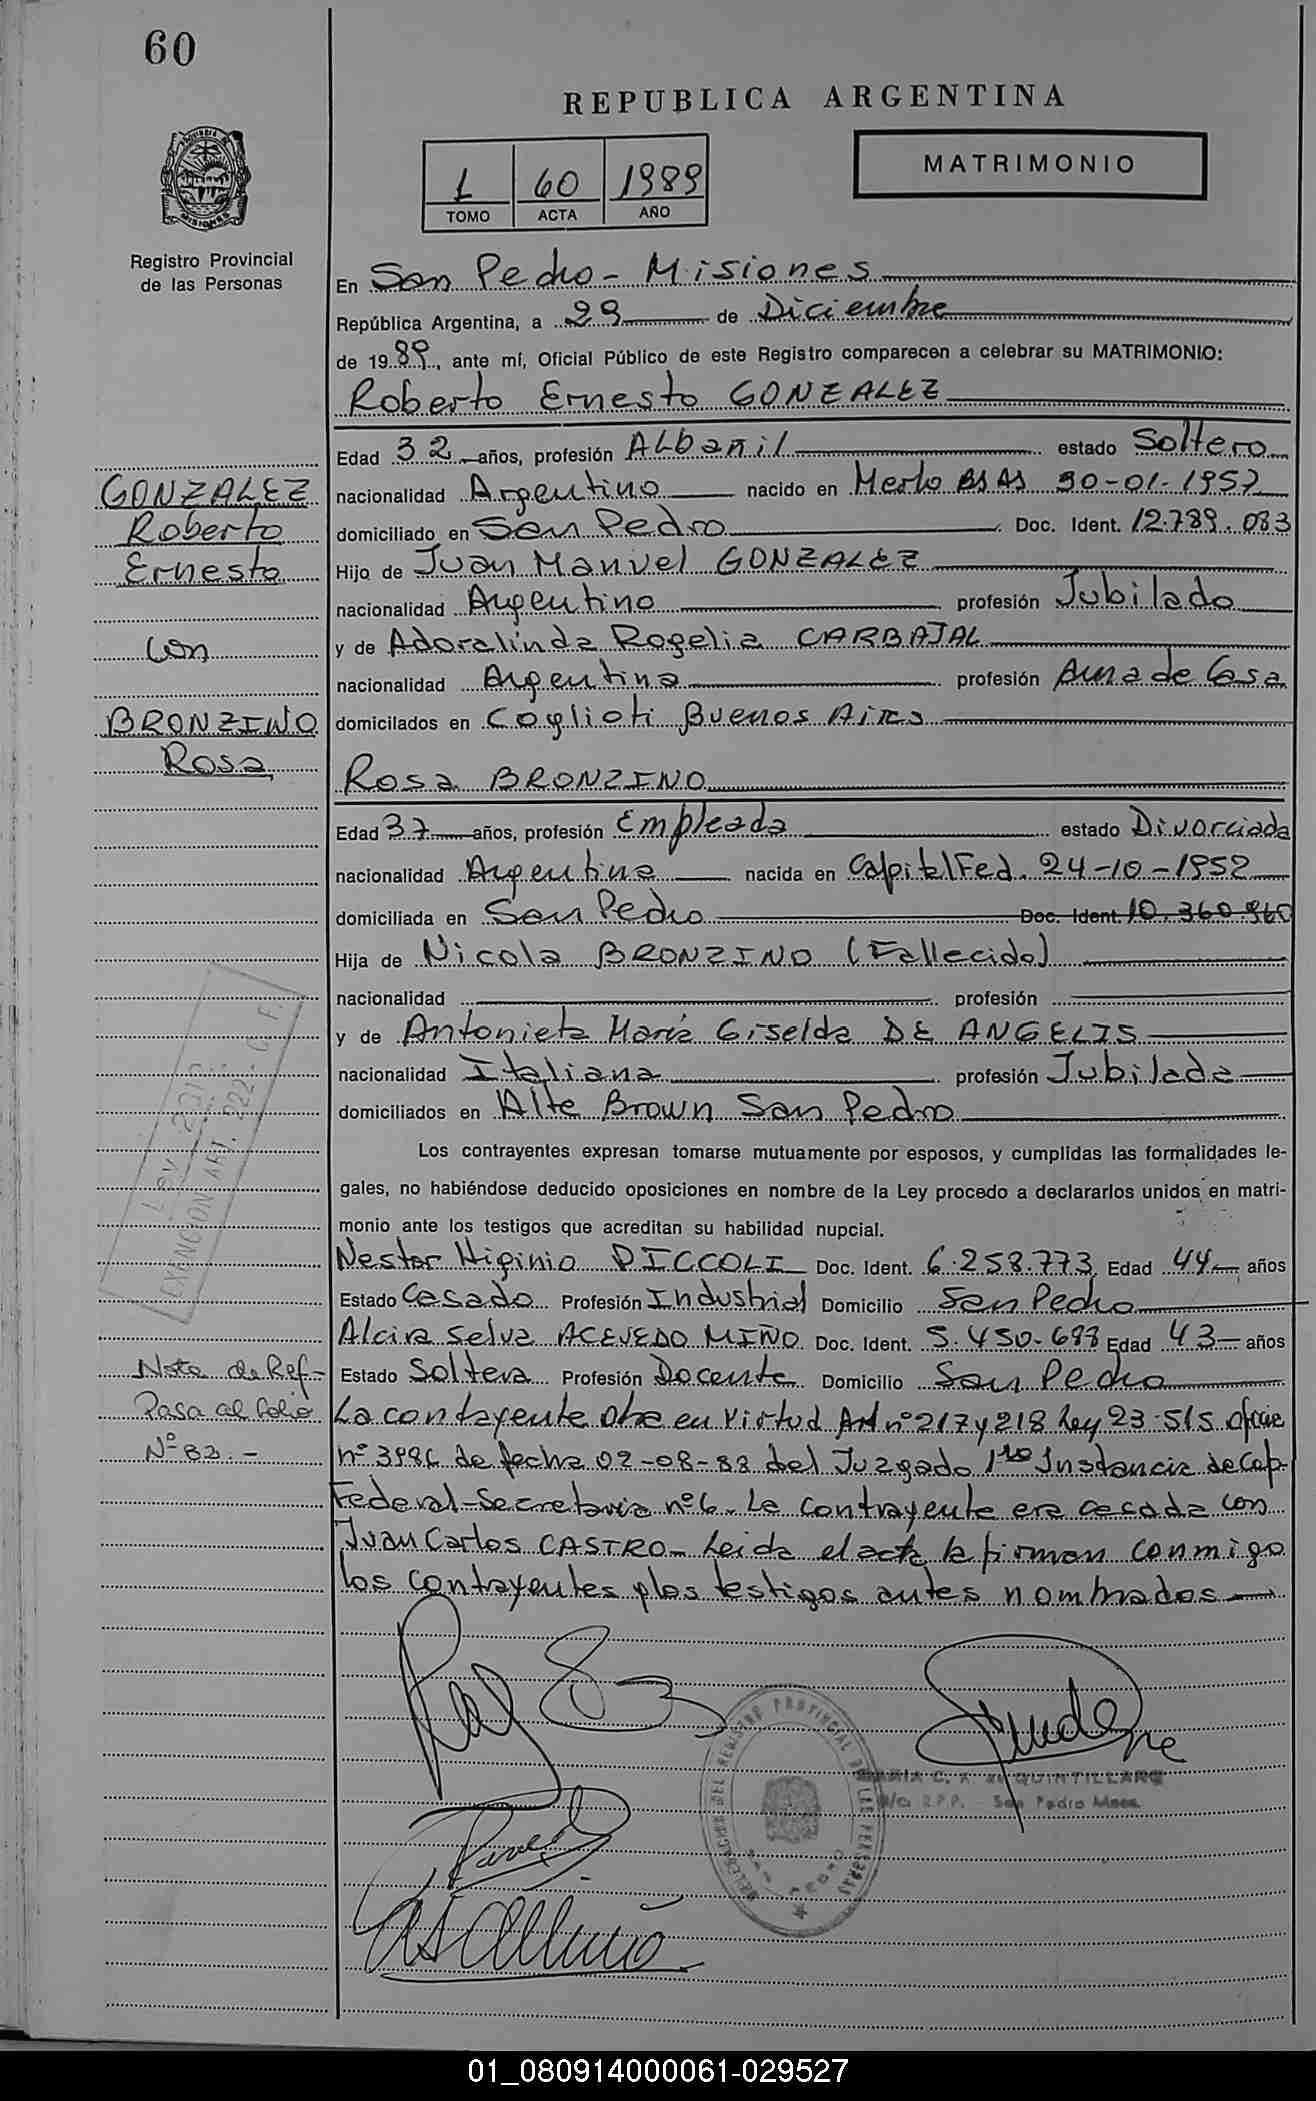 60
REPUBLICA ARGENTINA
MATRIMONIO
1 60 1989
TOMO ACTA AÑO
Registro Provincial
de las Personas
En San Pedro - Misiones
República Argentina, a 29 de Diciembre
de 1989, ante mí, Oficial Público de este Registro comparecen a celebrar su MATRIMONIO:
Roberto Ernesto GONZALEZ
Edad 32 años, profesión ALbañil estado Soltero
nacionalidad Argentino nacido en Merlo BS AS 30-01-1957
domiciliado en San Pedro Doc. Ident. 12.789.083
Hijo de Juan Manuel GONZALEZ
nacionalidad Argentino profesión Jubilado
y de Adoralinda Rogelia CARBAJAL
nacionalidad Argentina profesión Ama de Casa
domicilados en Buenos Aires
GONZALEZ
Roberto
Ernesto
con
BRONZINO
Rosa
Rosa BRONZINO
Edad 37 años, profesión Empleada estado Divorciada
nacionalidad Argentina nacida en Capital Fed. 24-10-1952
domiciliada en San Pedro Doc. Ident. 10.360.960
Hija de Nicola BRONZINO (Fallecido)
nacionalidad profesión
y de Antonieta María Giselda DE ANGELIS
nacionalidad Italiana profesión Jubilada
domiciliados en Alte Brown San Pedro
Los contrayentes expresan tomarse mutuamente por esposos, y cumplidas las formalidades le-
gales, no habiéndose deducido oposiciones en nombre de la Ley procedo a declararlos unidos en matri-
monio ante los testigos que acreditan su habilidad nupcial.
Nestor Higinio PICCOLI Doc. Ident. 6.258.773 Edad 44 años
Estado Casado Profesión Industrial Domicilio San Pedro
Alcira Selva ACEVEDO MIÑO Doc. Ident. 5.450.688 Edad 43 años
Estado Soltera Profesión Docente Domicilio San Pedro
LEY 2217
EXENCION ART. 222 - C. F.
Nota de Ref-
Pasa al folio
Nº 82.-
La contrayente en virtud Art nº 217 y 218 Ley 23.515 oficio
nº 3986 de fecha 02-08-88 del Juzgado 1ra Instancia de Cap-
Federal-Secretaria nº 6. La contrayente era casada con
Juan Carlos CASTRO- Leida el acta la firman conmigo
los contrayentes y los testigos antes nombrados
DELEGACION DEL REGISTRO PROVINCIAL DE LAS PERSONAS
SAN PEDRO
MARIA C. A. de QUINTILLARG
a/c. R.P.P. - San Pedro Mnes.
01_080914000061-029527